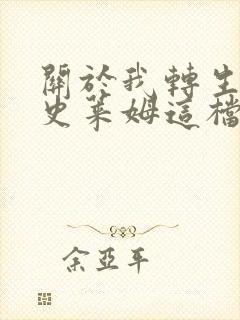 關於我轉生
史萊姆這檔
余亞平